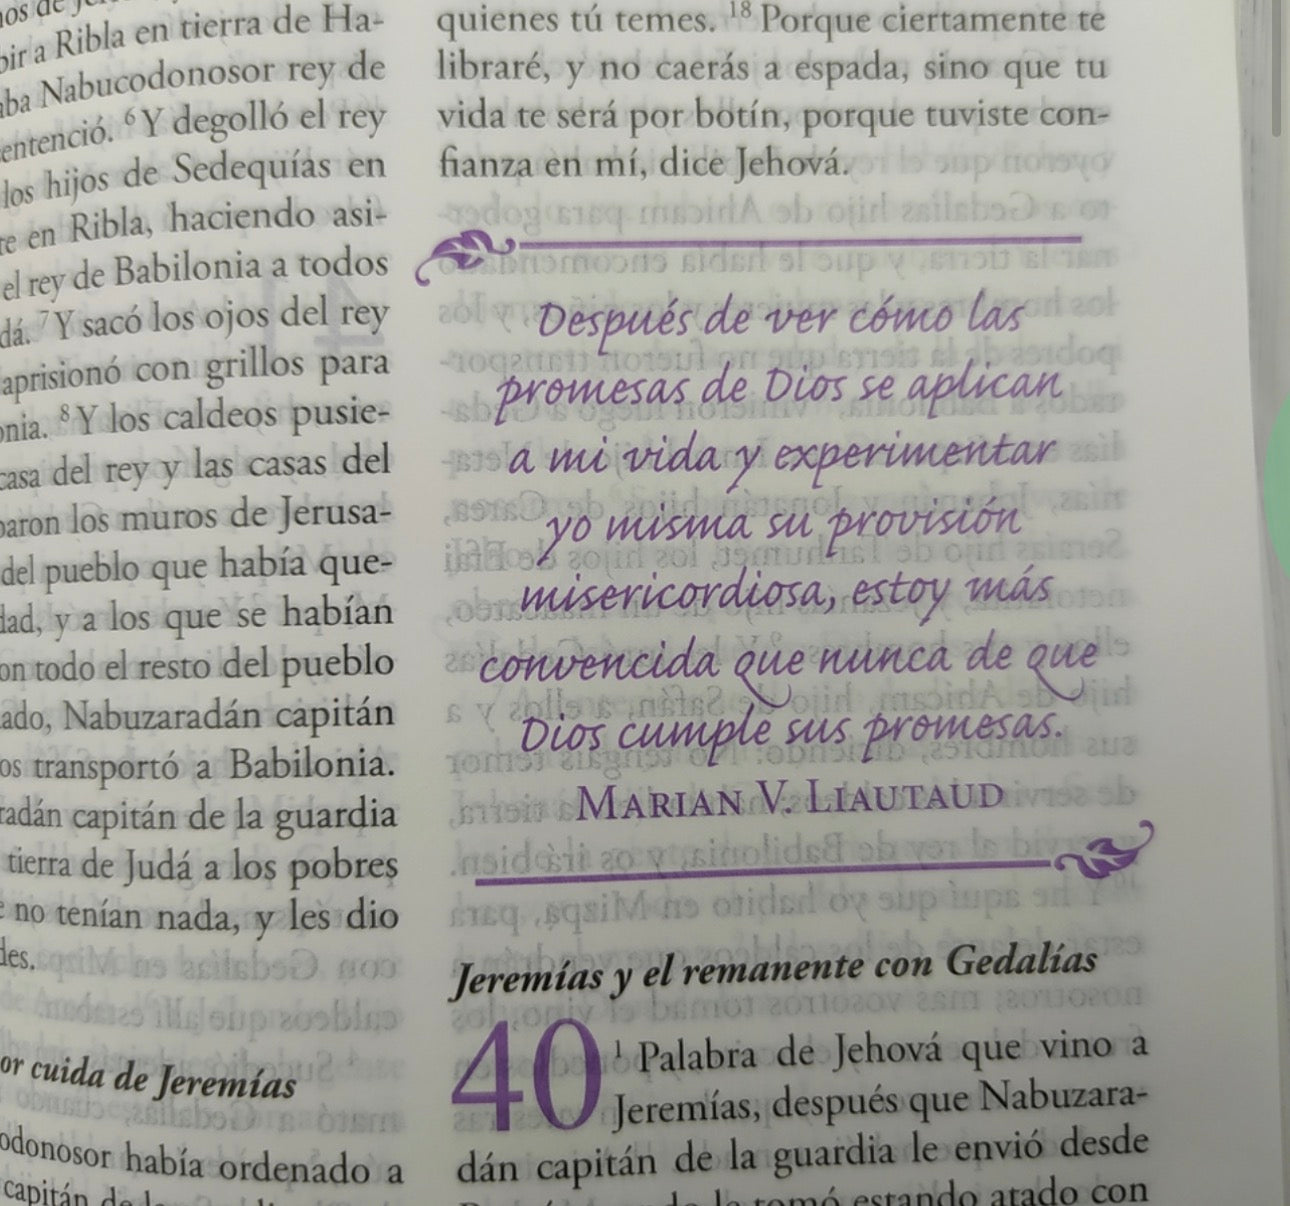 a Ribla en tierra de Ha-
Nabucodonosor rey de
⁶Y degolló el rey
los hijos de Sedequías en
en Ribla, haciendo asi-
el rey de Babilonia a todos
⁷Y sacó los ojos del rey
aprisionó con grillos para
⁸Y los caldeos pusie-
casa del rey y las casas del
los muros de Jerusa-
del pueblo que había que-
y a los que se habían
todo el resto del pueblo
Nabuzaradán capitán
transportó a Babilonia.
capitán de la guardia
tierra de Judá a los pobres
no tenían nada, y les dio
cuida de Jeremías
había ordenado a
capitán
quienes tú temes. ¹⁸Porque ciertamente te
libraré, y no caerás a espada, sino que tu
vida te será por botín, porque tuviste con-
fianza en mí, dice Jehová.
Después de ver cómo las
promesas de Dios se aplican
a mi vida y experimentar
yo misma su provisión
misericordiosa, estoy más
convencida que nunca de que
Dios cumple sus promesas.
Marian V. Liautaud
Jeremías y el remanente con Gedalías
40 ¹Palabra de Jehová que vino a
Jeremías, después que Nabuzara-
dán capitán de la guardia le envió desde
tomó estando atado con